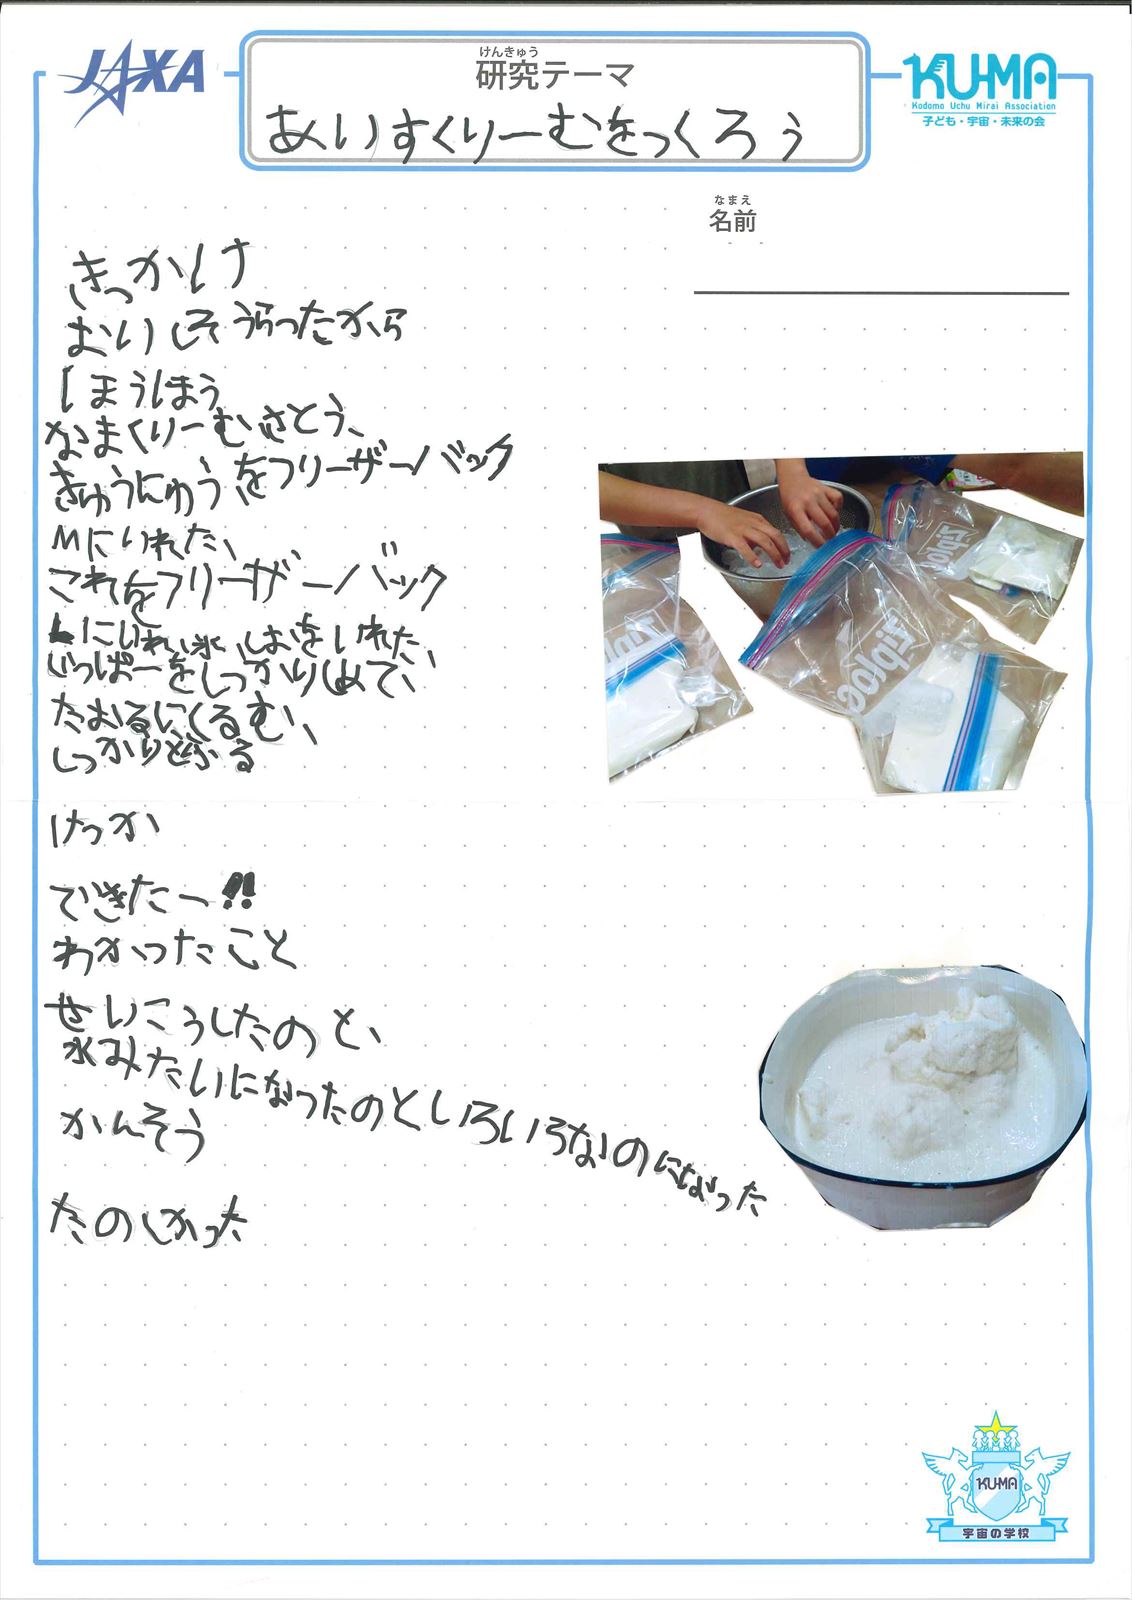 JAXA
けんきゅう
研究テーマ
あいすくりーむをつくろう
KU-MA
Kodomo Uchu Mirai Association
子ども・宇宙・未来の会
なまえ
名前
きっかけ
おいしそうらったから
なまくりーむ、さとう、
きゅうにゅうをフリーザーバック
Mにいれた、
これをフリーザーバック
Lにいれ、氷、しおをいれた、
じっぱーをしっかりしめて、
たおるにくるむ、
しっかりとふる
けっか
できたー!!
わかったこと
せいこうしたのと、
水みたいになったのといろいろなのになった
かんそう
たのしかった
Ziploc
Ziploc
Ziploc
KU-MA
宇宙の学校